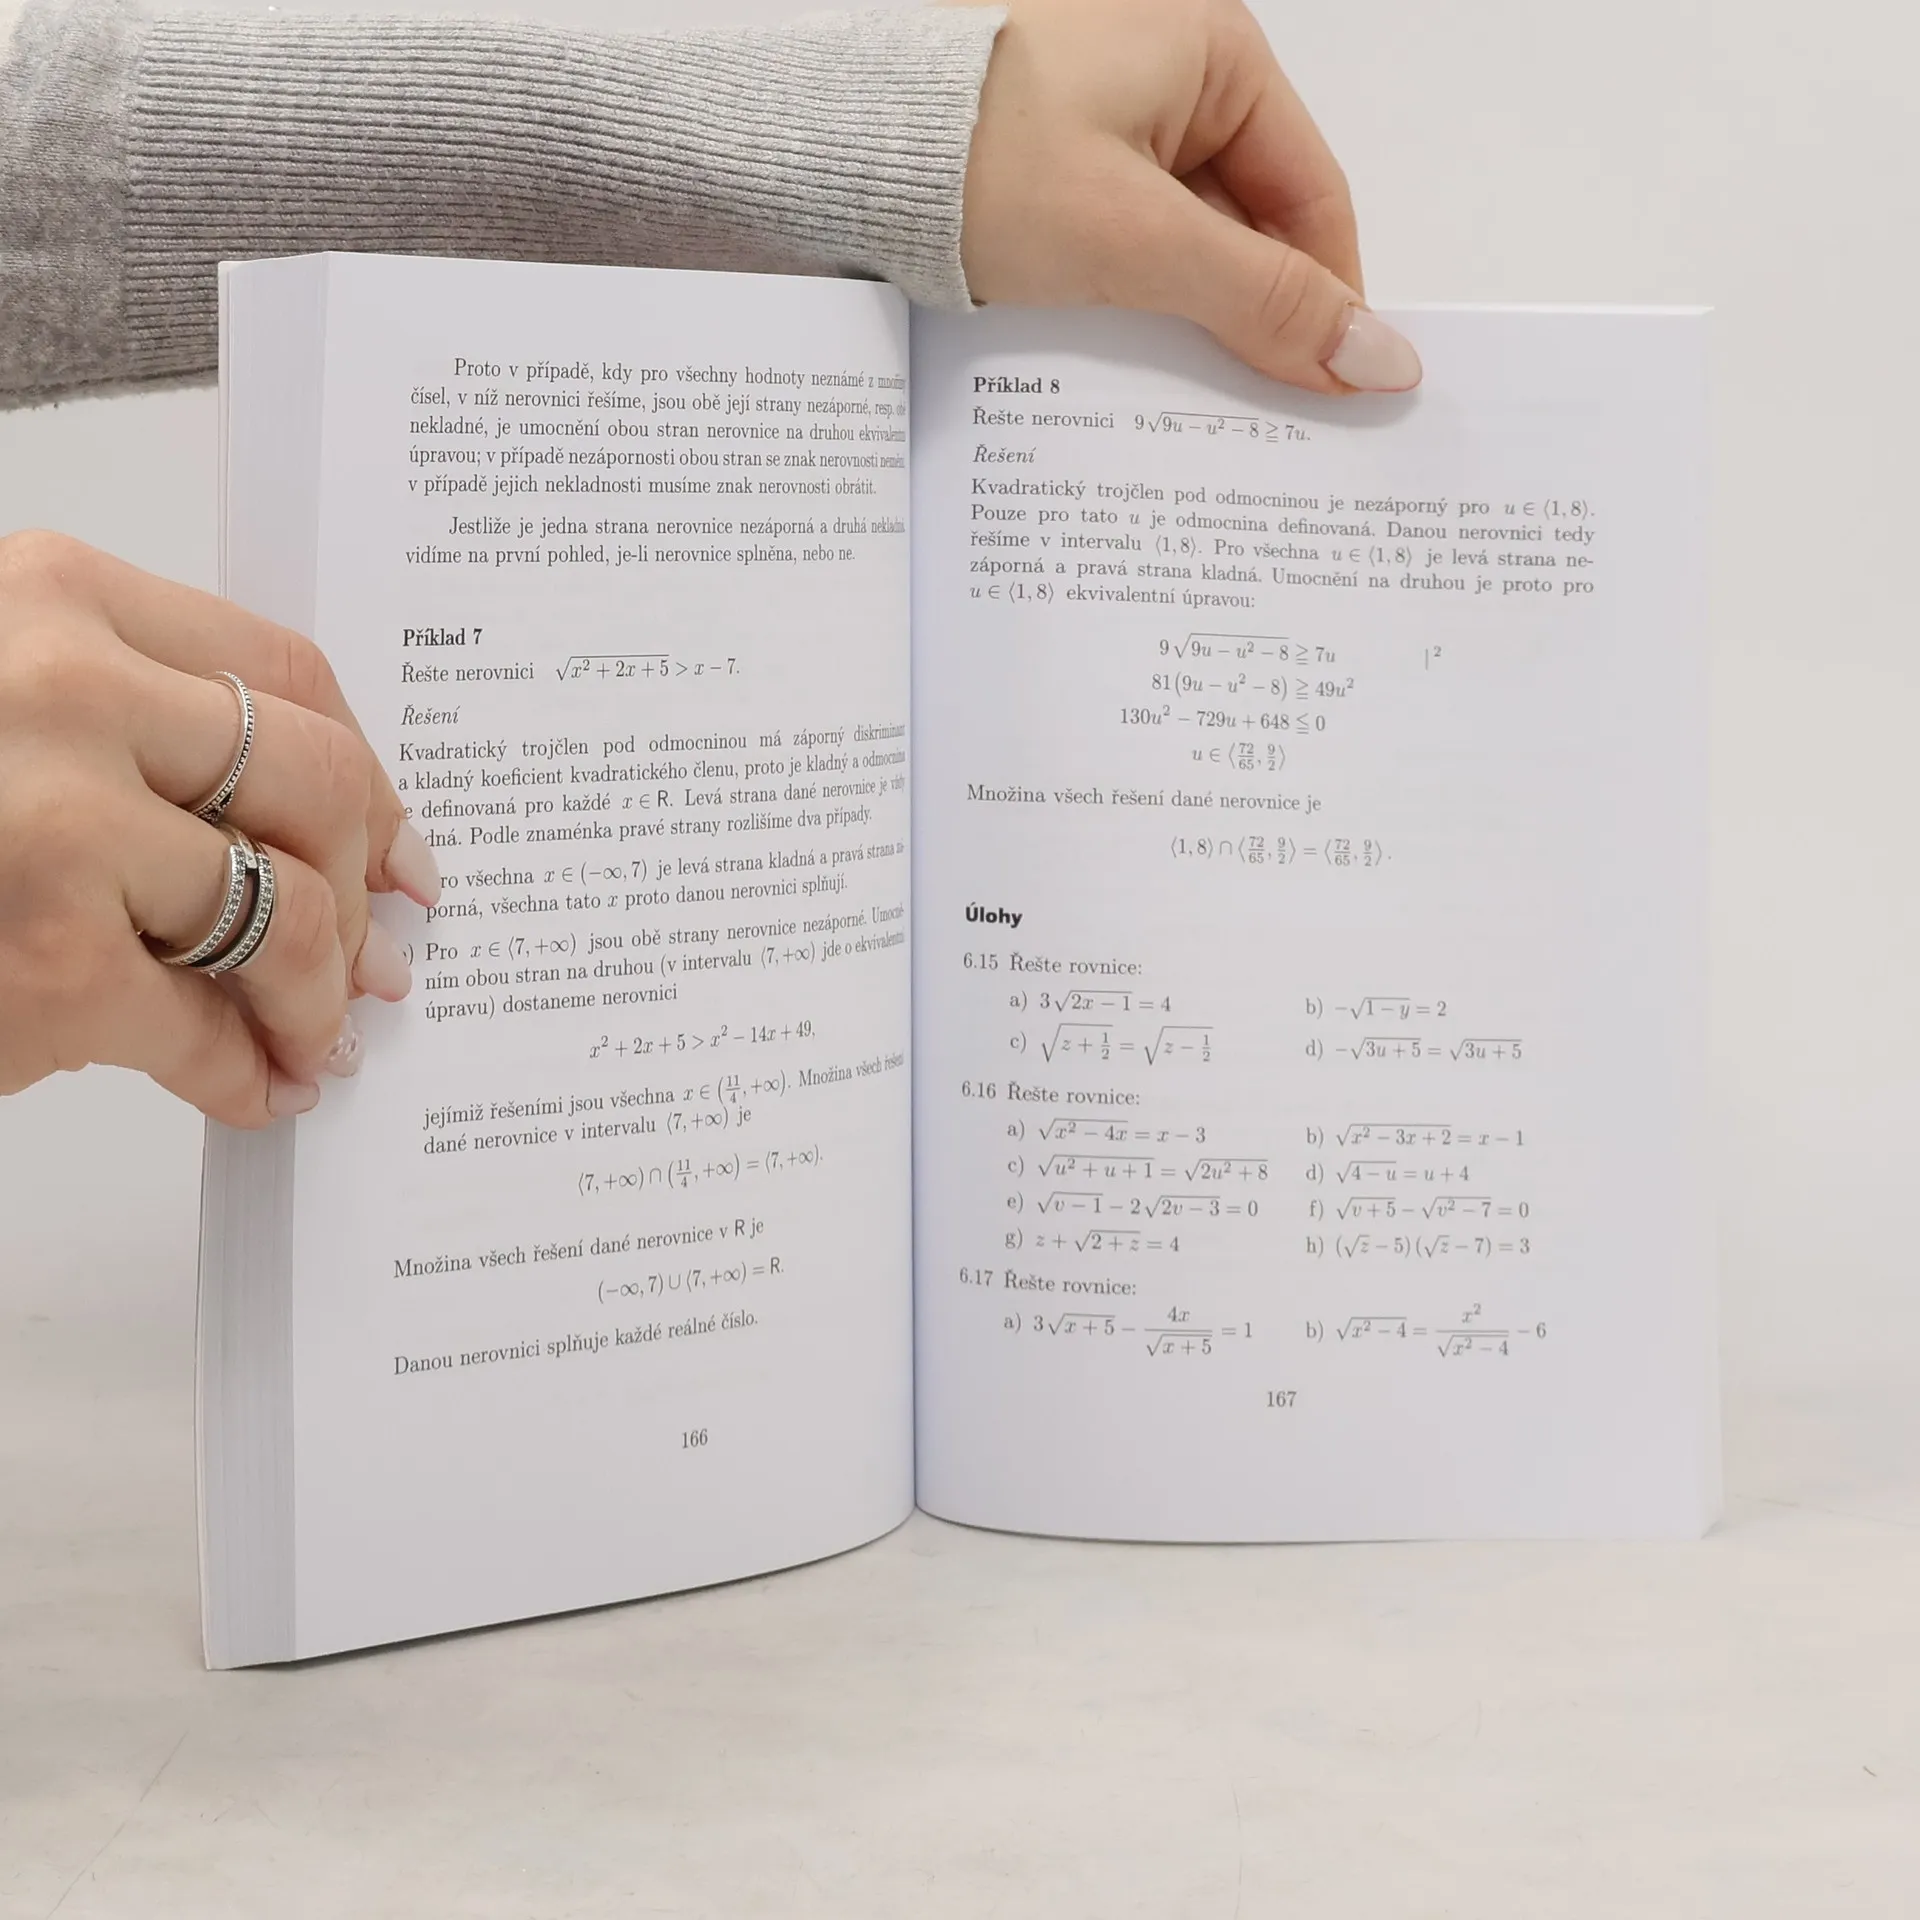 Proto v případě, kdy pro všechny hodnoty neznámé z množiny
čísel, v níž nerovnici řešíme, jsou obě její strany nezáporné, resp. obě
nekladné, je umocnění obou stran nerovnice na druhou ekvivalentní
úpravou; v případě nezápornosti obou stran se znak nerovnosti nemění,
v případě jejich nekladnosti musíme znak nerovnosti obrátit.
Jestliže je jedna strana nerovnice nezáporná a druhá nekladná
vidíme na první pohled, je-li nerovnice splněna, nebo ne.
Příklad 7
Řešte nerovnici √(x² + 2x + 5) > x − 7.
Řešení
Kvadratický trojčlen pod odmocninou má záporný diskriminant
a kladný koeficient kvadratického členu, proto je kladný a odmocnina
e definovaná pro každé x ∈ R. Levá strana dané nerovnice je vždy
dná. Podle znaménka pravé strany rozlišíme dva případy.
ro všechna x ∈ (−∞, 7) je levá strana kladná a pravá strana zá-
porná, všechna tato x proto danou nerovnici splňují.
) Pro x ∈ ⟨7, +∞) jsou obě strany nerovnice nezáporné. Umocně-
ním obou stran na druhou (v intervalu ⟨7, +∞) jde o ekvivalentní
úpravu) dostaneme nerovnici
x² + 2x + 5 > x² − 14x + 49,
jejímiž řešeními jsou všechna x ∈ (11/4, +∞). Množina všech řešení
dané nerovnice v intervalu ⟨7, +∞) je
⟨7, +∞) ∩ (11/4, +∞) = ⟨7, +∞).
Množina všech řešení dané nerovnice v R je
(−∞, 7) ∪ ⟨7, +∞) = R.
Danou nerovnici splňuje každé reálné číslo.
166
Příklad 8
Řešte nerovnici 9√(9u − u² − 8) ≧ 7u.
Řešení
Kvadratický trojčlen pod odmocninou je nezáporný pro u ∈ ⟨1, 8⟩.
Pouze pro tato u je odmocnina definovaná. Danou nerovnici tedy
řešíme v intervalu ⟨1, 8⟩. Pro všechna u ∈ ⟨1, 8⟩ je levá strana ne-
záporná a pravá strana kladná. Umocnění na druhou je proto pro
u ∈ ⟨1, 8⟩ ekvivalentní úpravou:
9√(9u − u² − 8) ≧ 7u |²
81(9u − u² − 8) ≧ 49u²
130u² − 729u + 648 ≦ 0
u ∈ ⟨72/65, 9/2⟩
Množina všech řešení dané nerovnice je
⟨1, 8⟩ ∩ ⟨72/65, 9/2⟩ = ⟨72/65, 9/2⟩.
Úlohy
6.15 Řešte rovnice:
a) 3√(2x − 1) = 4 b) −√(1 − y) = 2
c) √(z + 1/2) = √(z − 1/2) d) −√(3u + 5) = √(3u + 5)
6.16 Řešte rovnice:
a) √(x² − 4x) = x − 3 b) √(x² − 3x + 2) = x − 1
c) √(u² + u + 1) = √(2u² + 8) d) √(4 − u) = u + 4
e) √(v − 1) − 2√(2v − 3) = 0 f) √(v + 5) − √(v² − 7) = 0
g) z + √(2 + z) = 4 h) (√z − 5)(√z − 7) = 3
6.17 Řešte rovnice:
a) 3√(x + 5) − 4x/√(x + 5) = 1 b) √(x² − 4) = x²/√(x² − 4) − 6
167